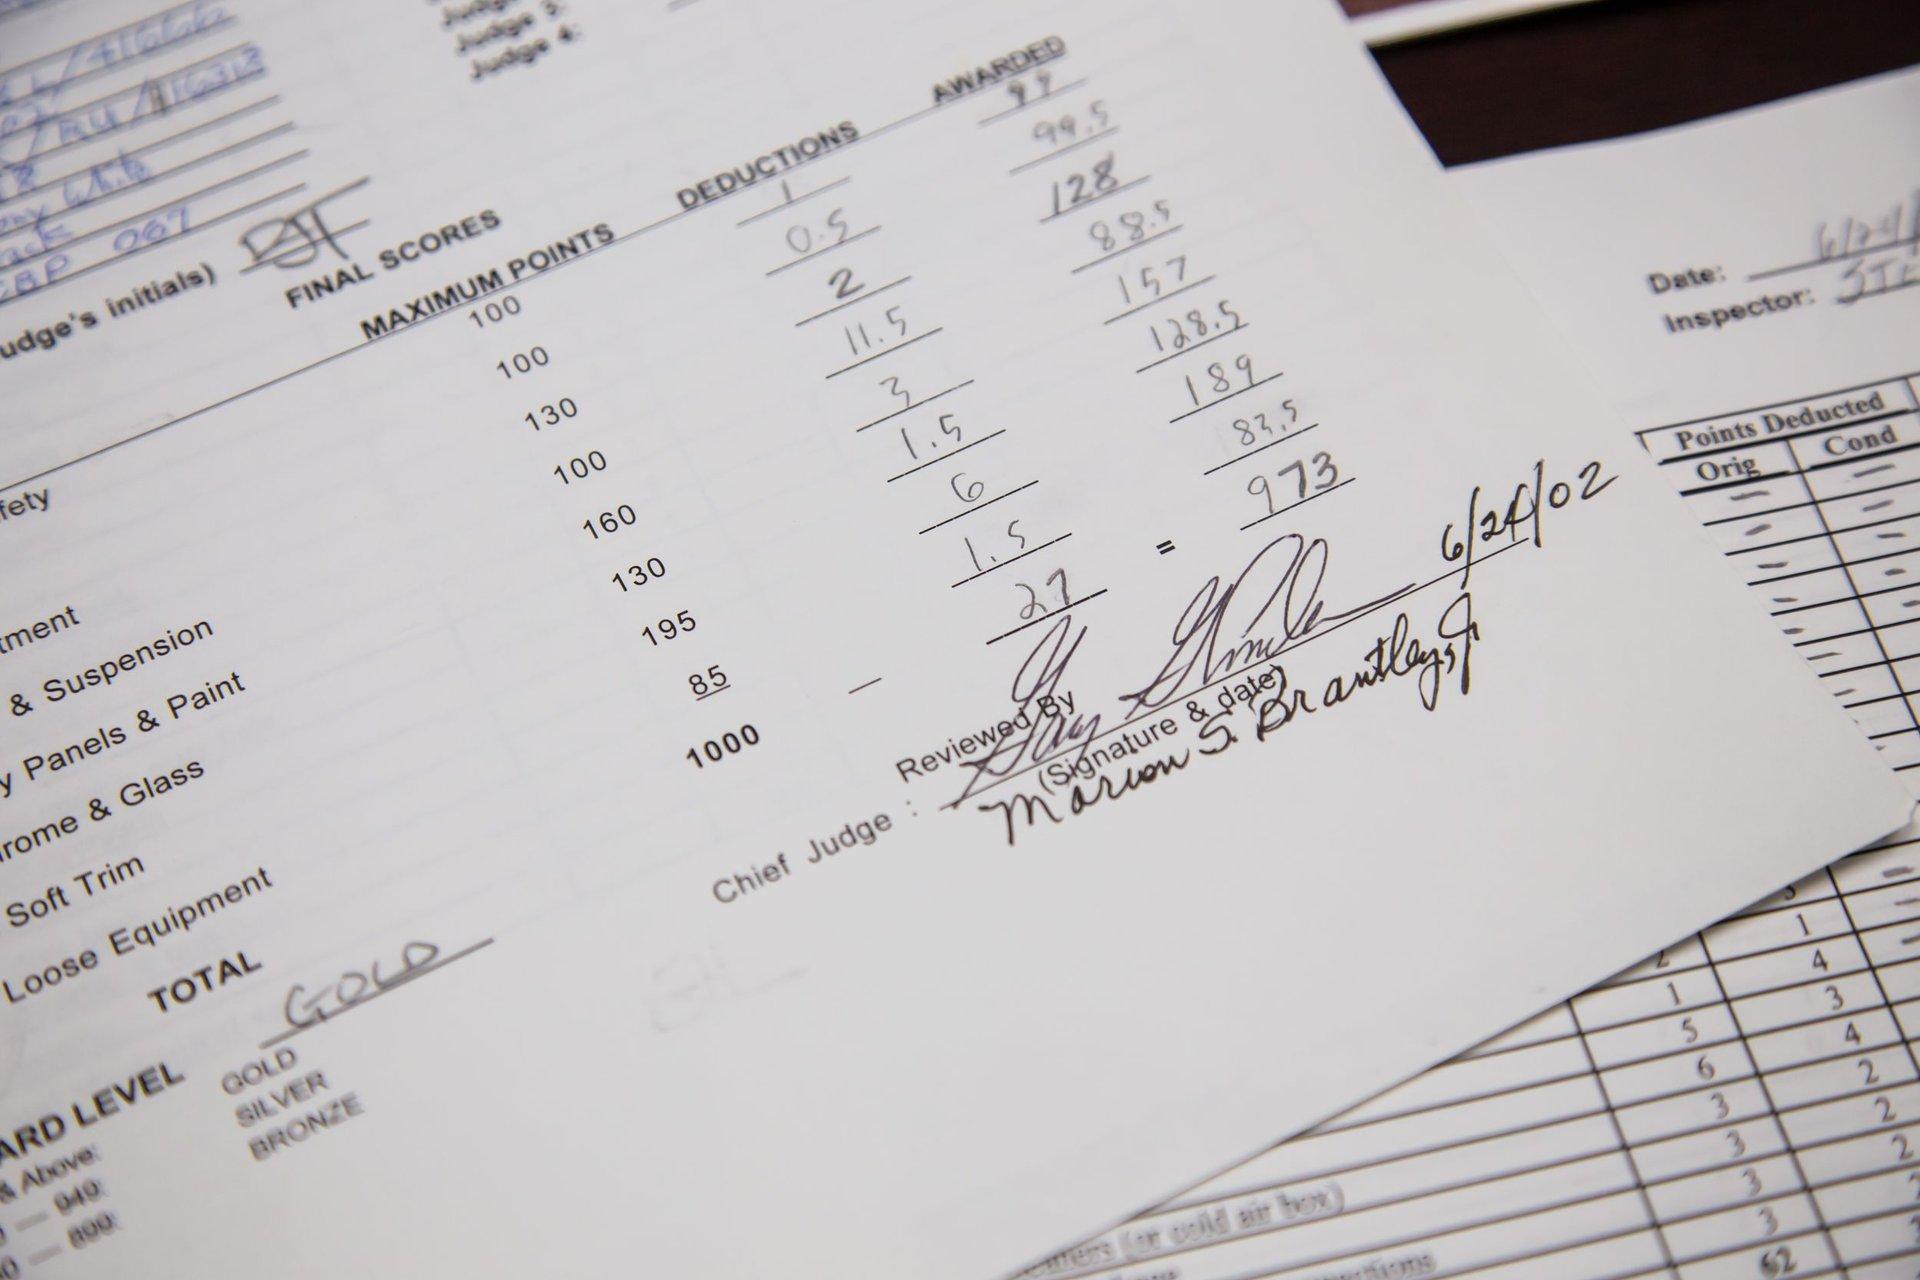 Judge 3:
Judge 4:
067
udge's initials)
FINAL SCORES
MAXIMUM POINTS DEDUCTIONS AWARDED
100 1 99
100 0.5 99.5
130 2 128
100 11.5 88.5
160 3 157
130 1.5 128.5
195 6 189
85 1.5 83.5
1000 — 27 = 973
fety
tment
& Suspension
y Panels & Paint
rome & Glass
Soft Trim
Loose Equipment
TOTAL
ARD LEVEL GOLD
& Above: GOLD
— 949: SILVER
— 899: BRONZE
Reviewed By
6/24/02
(Signature & date)
Chief Judge : Marion S. Brantley, Jr
Date: 6/24/
Inspector:
Points Deducted
Orig Cond
1
2 4
1 3
5 4
6 2
3 2
3 2
3
3
62
(or cold air box)